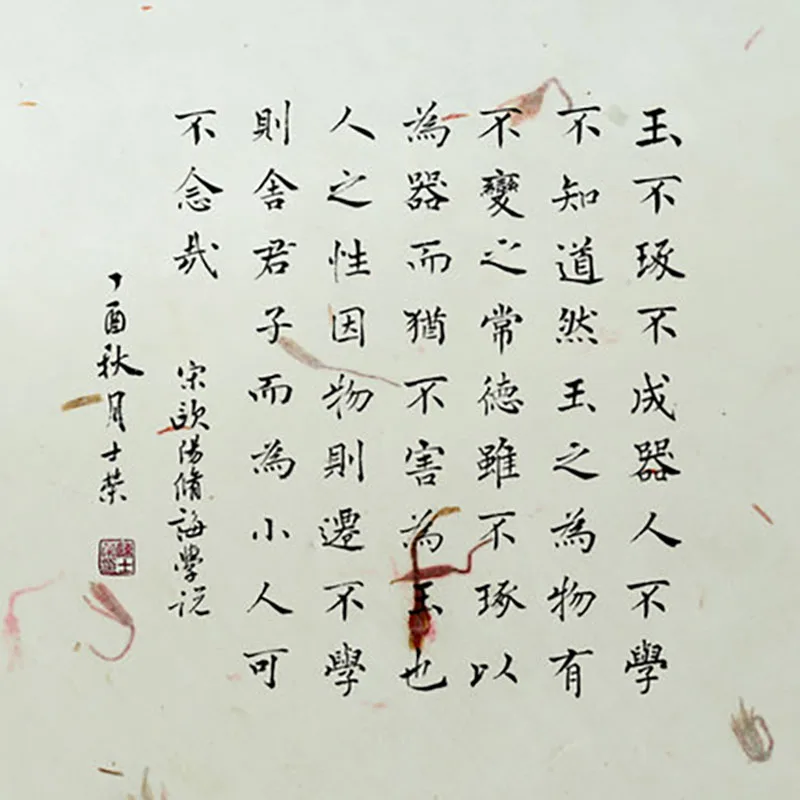 玉不琢不成器人不學
不知道然玉之為物有
不變之常德雖不琢以
為器而猶不害為玉也
人之性因物則遷不學
則舍君子而為小人可
不念哉
宋歐陽脩誨學說
丁酉秋月士榮